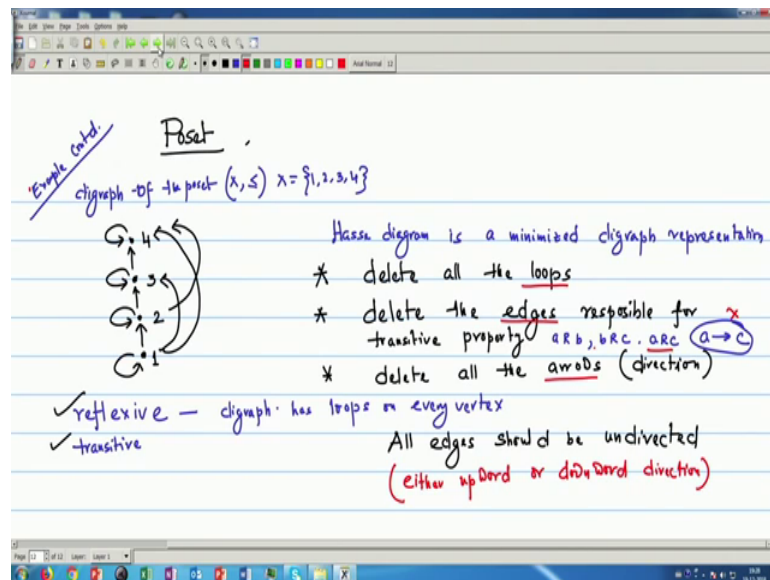 File Edit View Page Tools Options Help
Arial Normal 12
Example Contd.
Poset .
digraph of the poset (X, ≤) X = {1, 2, 3, 4}
4
3
2
1
Hasse diagram is a minimized digraph representation
* delete all the loops
* delete the edges resposible for x
transitive property aRb, bRc. aRc a → c
* delete all the arrows (direction)
✓ reflexive — digraph has loops on every vertex
✓ transitive
All edges should be undirected
(either upword or downword direction)
Page 12 of 12 Layer: Layer 1